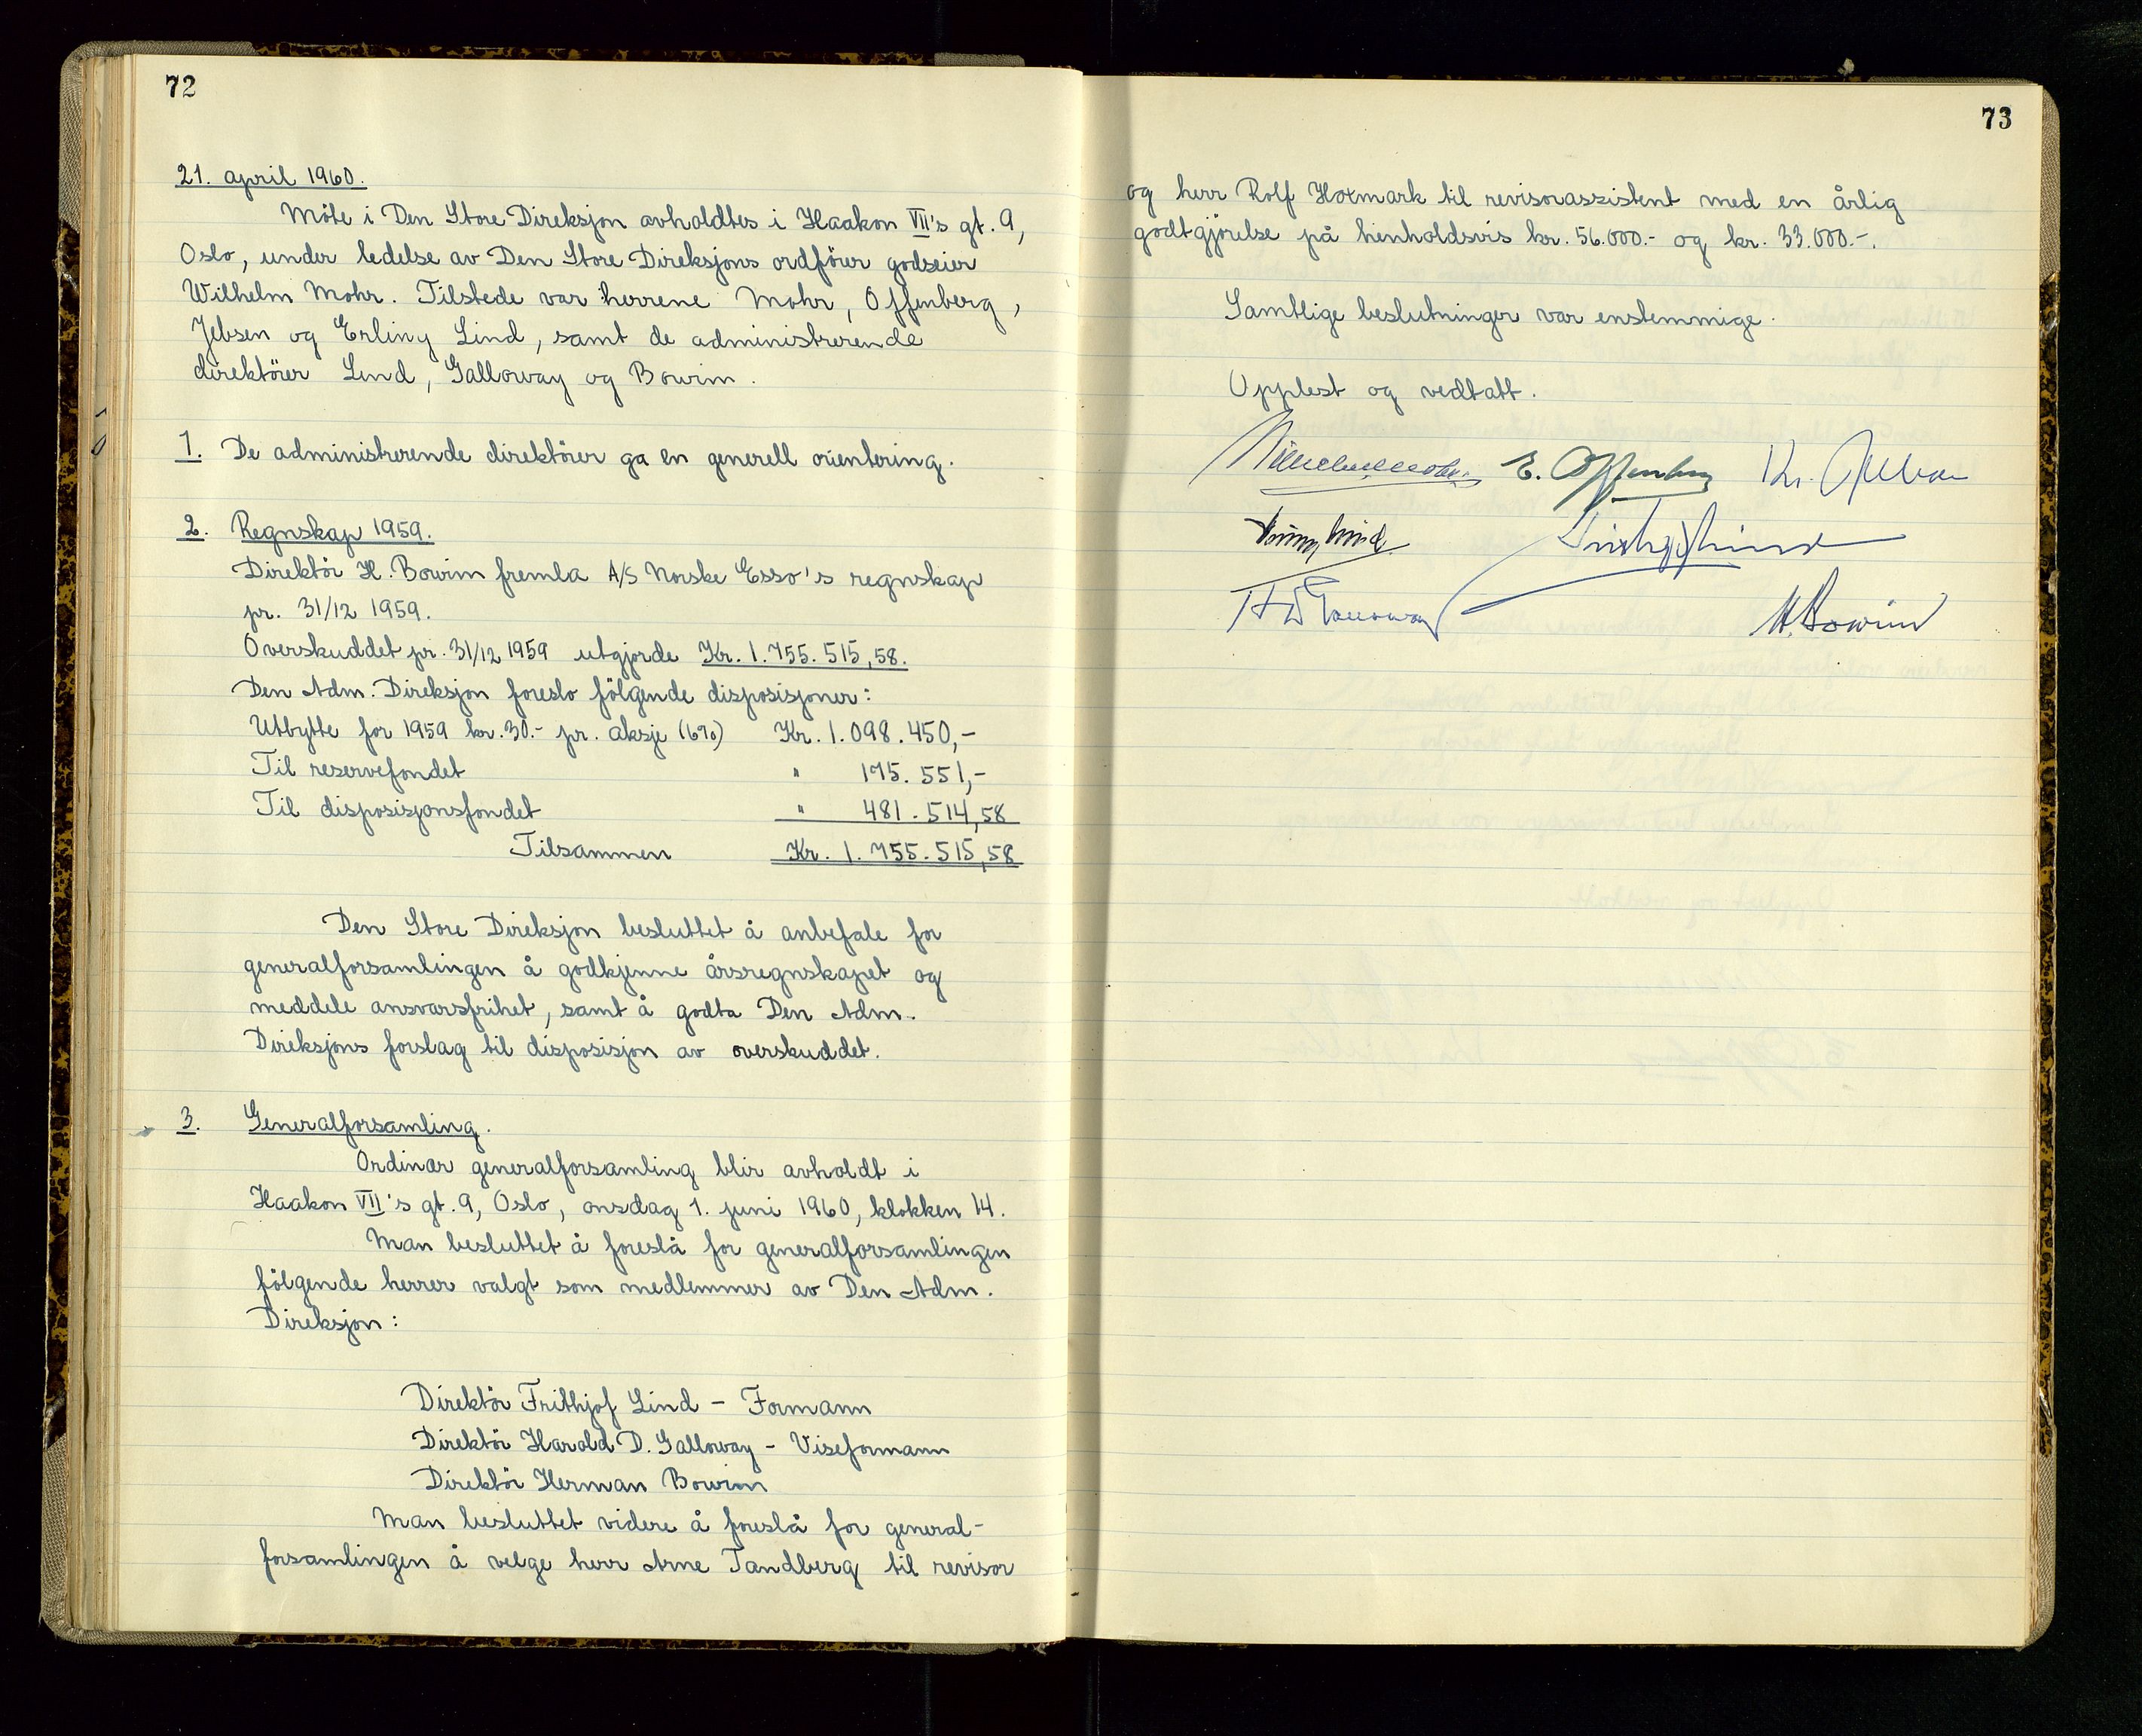 72
21. april 1960.
Möte i Den Store Direksjon avholdtes i Haakon VII's gt. 9,
Oslo, under ledelse av Den Store Direksjons ordförer godseier
Wilhelm Mohr. Tilstede var herrene Mohr, Offenberg,
Jebsen og Erling Lind, samt de administrerende
direktörer Lind, Galloway og Bowim.
1. De administrerende direktörer ga en generell orientering.
2. Regnskap 1959.
Direktör H. Bowim fremla A/S Norske Esso's regnskap
pr. 31/12 1959.
Overskuddet pr. 31/12 1959 utgjorde Kr. 1.755.515,58.
Den Adm. Direksjon foreslo fölgende disposisjoner:
Utbytte for 1959 kr. 30.- pr. aksje (6%) Kr. 1.098.450,-
Til reservefondet " 175.551,-
Til disposisjonsfondet " 481.514,58
Tilsammen Kr. 1.755.515,58
Den Store Direksjon besluttet å anbefale for
generalforsamlingen å godkjenne årsregnskapet og
meddele ansvarsfrihet, samt å godta Den Adm.
Direksjons forslag til disposisjon av overskuddet.
3. Generalforsamling.
Ordinær generalforsamling blir avholdt i
Haakon VII's gt. 9, Oslo, onsdag 1. juni 1960, klokken 14.
Man besluttet å foreslå for generalforsamlingen
fölgende herrer valgt som medlemmer av Den Adm.
Direksjon:
Direktör Frithjof Lind - Formann
Direktör Harold D. Galloway - Viseformann
Direktör Herman Bowim
Man besluttet videre å foreslå for general-
forsamlingen å velge herr Arne Tandberg til revisor
73
og herr Rolf Hoxmark til revisorassistent med en årlig
godtgjörelse på henholdsvis kr. 56.000.- og kr. 33.000.-.
Samtlige beslutninger var enstemmige.
Opplest og vedtatt.
Wilhelm Mohr E. Offenberg Kr. Jebsen
Erling Lind Frithjof Lind
H D Galloway H. Bowim